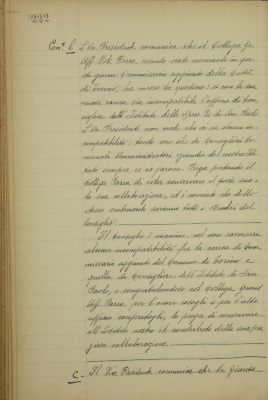 Com.e 6° L'On. Presidente comunica che il Collega Gr.
Uff. Vitt. Parea, essendo stato nominato in que-
sti giorni Commissario aggiunto della Città
di Torino, ha mosso la questione: se con la sua
nuova carica sia incompatibile l'ufficio di Con-
sigliere dell'Istituto delle Opere Pie di San Paolo.
L'On. Presidente non vede che vi sia alcuna in-
compatibilità: tanto vero che dei Consiglieri Co-
munali Amministratori egualmente del nostro Isti-
tuto sempre ve ne furono. Prega pertanto il
Collega Parea di voler conservare il posto suo e
la sua collaborazione, ed è sicuro che dello
stesso sentimento saranno tutti i Membri del
Consiglio.
Il Consiglio è unanime nel non ravvisare
alcuna incompatibilità fra la carica di Com-
missario aggiunto del Comune di Torino e
quella di Consigliere dell'Istituto di San
Paolo, e congratulandosi col Collega Grand'
Uff. Parea per l'onore accogli e per l'alto
ufficio conferitogli, lo prega di conservare
all'Istituto nostro il contributo della sua pre-
giosa collaborazione.
C.- Il Vice Presidente comunica che la Guardia